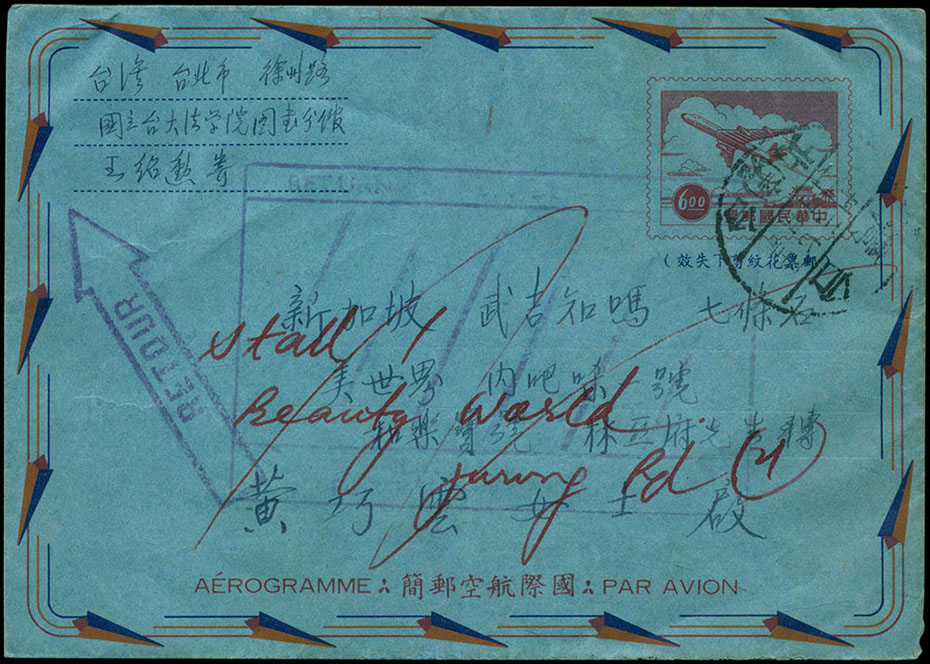 台湾 台北市 徐州路
國立台大法学院图書分館
王紹勳 寄
6.00
中華民國郵票
(郵票花紋剪下失效)
RETOUR
新加坡 武吉知嗎 七條石
美世界 內吧味一號
號 林亞府先生轉
黃巧雲女士 啟
Stall 1
Beauty World
Jurong Rd (21)
AÉROGRAMME 簡郵空航際國 PAR AVION